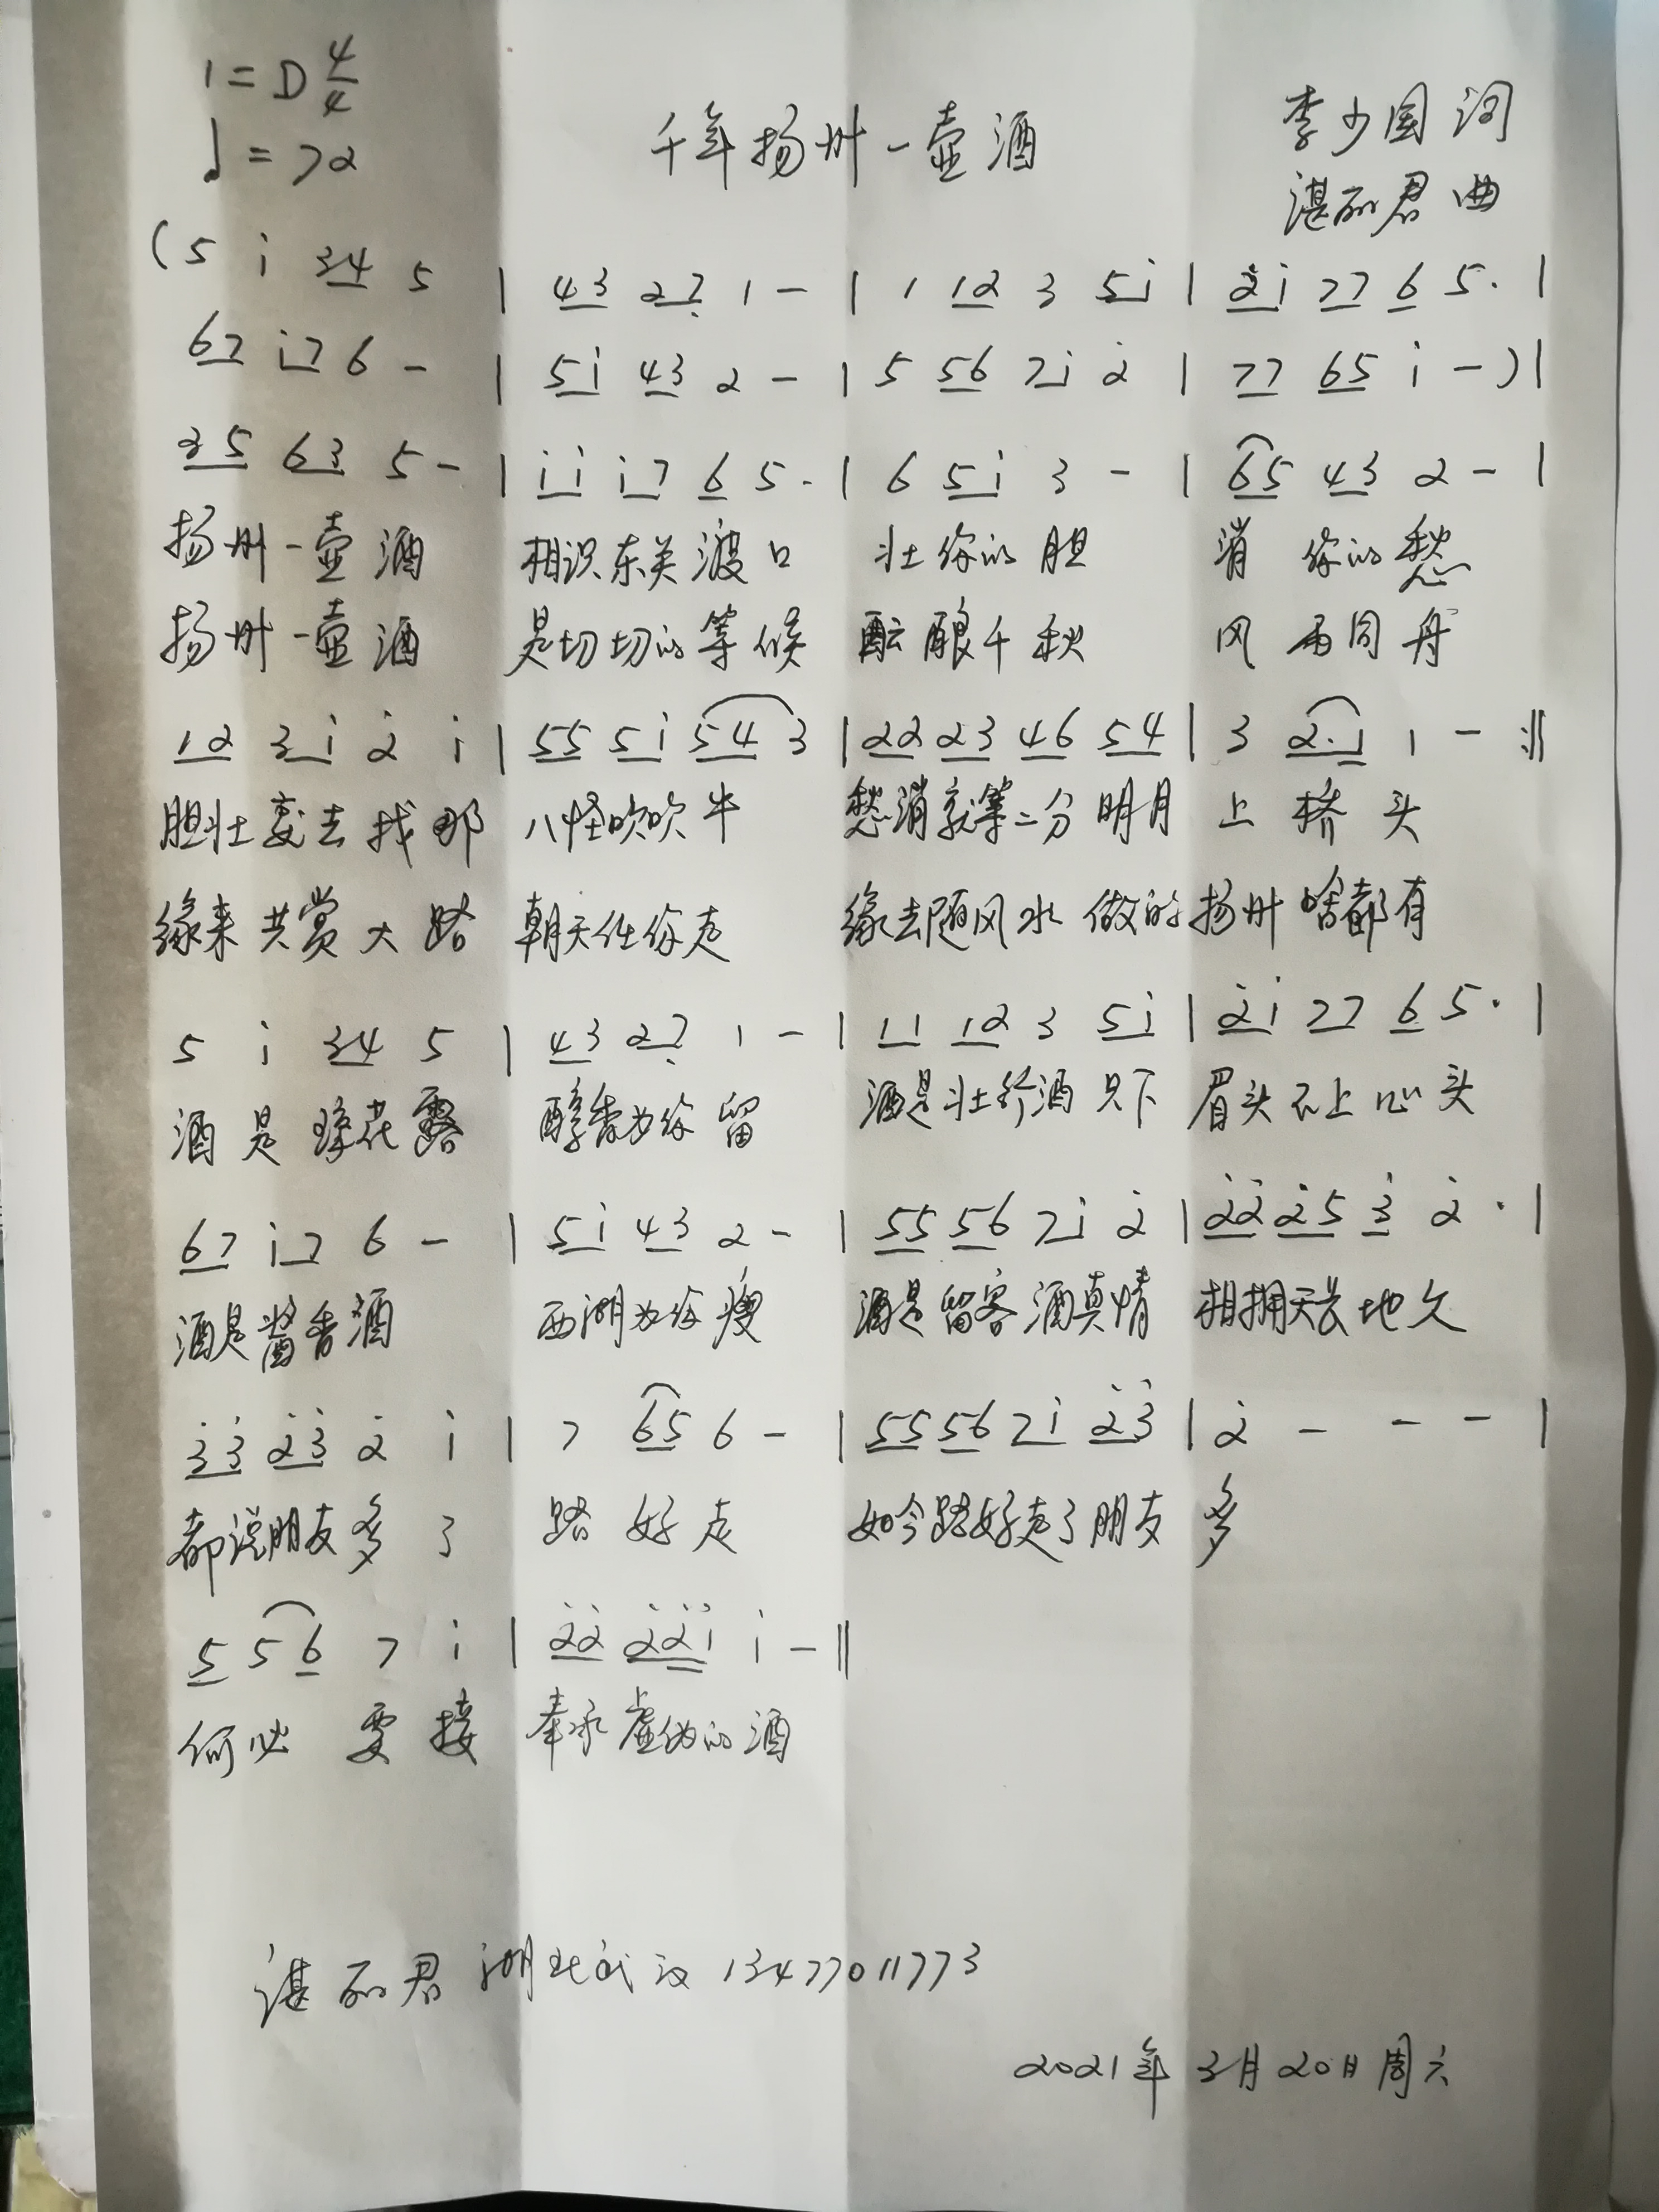 1=D 4/4
♩=72
千年扬州一壶酒
李少国 词
湛丽君 曲
(5 i̇ 34 5 | 43 27̣ 1 - | 1 12 3 5i̇ | 2̇i̇ 77 6 5. |
67 i̇7 6 - | 5i̇ 43 2 - | 5 56 7i̇ 2̇ | 77 65 i̇ -) |
35 63 5 - | i̇i̇ i̇7 6 5. | 6 5i̇ 3 - | 65 43 2 - |
扬州一壶酒 相识东关渡口 壮你的胆 消你的愁
扬州一壶酒 是切切的等候 酝酿千秋 风雨同舟
12 3i̇ 2̇ i̇ | 55 5i̇ 54 3 | 22 23 46 54 | 3 2.1 1 - :||
胆壮要去找那 八怪吹吹牛 愁消就等二分明月 上桥头
缘来共赏大路 朝天任你走 缘去随风水做的扬州啥都有
5 i̇ 34 5 | 43 27̣ 1 - | 11 12 3 5i̇ | 2̇i̇ 77 6 5. |
酒是琼花露 醇香为你留 酒是壮行酒只下 眉头不上心头
67 i̇7 6 - | 5i̇ 43 2 - | 55 56 7i̇ 2̇ | 2̇2̇ 2̇5 3̇ 2̇. |
酒是酱香酒 西湖为你瘦 酒是留客酒真情 相拥天长地久
3̇3̇ 2̇3̇ 2̇ i̇ | 7 65 6 - | 55 56 7i̇ 2̇3̇ | 2̇ - - - |
都说朋友多了 路好走 如今路好走了朋友 多
5 5 6 7 i̇ | 2̇2̇ 2̇2̇i̇ i̇ - ||
何必要接 奉承虚伪的酒
湛丽君 湖北武汉 13477011773
2021年3月20日周六